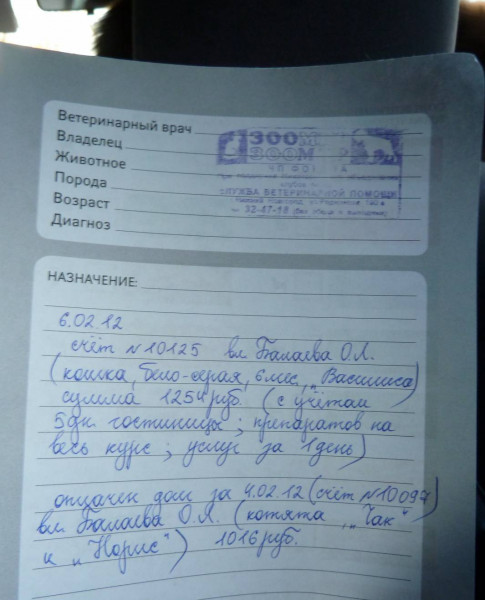 Ветеринарный врач
Владелец
Животное
Порода
Возраст
Диагноз
ЗОО
СЛУЖБА ВЕТЕРИНАРНОЙ ПОМОЩИ
32-47-18
НАЗНАЧЕНИЕ:
6.02.12
счёт №10125 вл. Балаева О.Л.
(кошка, бело-серая, 6 мес, „Василиса)
сумма 1254 руб. (с учётом
5 дн. гостиницы; препаратов на
весь курс; услуг за 1 день)
оплачен долг за 4.02.12 (счёт №10097)
вл. Балаева О.Л. (котята „Чак"
и „Норис") 1016 руб.